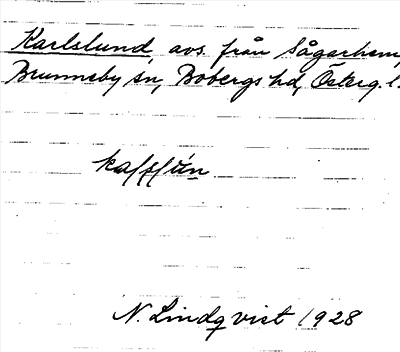 Karlslund, avs. från Sågarhem,
Brunneby sn, Bobergs hd, Österg. l.
N. Lindqvist 1928